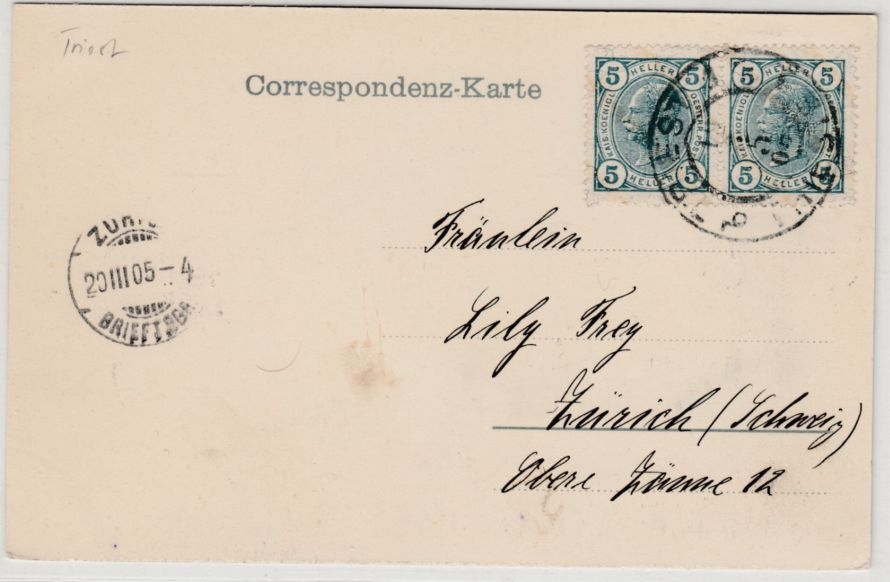 Triest
Correspondenz-Karte
5 HELLER 5
KAIS. KOENIGL. OESTERR. POST
5 HELLER 5
5 HELLER 5
KAIS. KOENIGL. OESTERR. POST
5 HELLER 5
TRIEST TRIEST
ZÜRIC
20III05-4
BRIEFTRGR
Fräulein
Lily Frey
Zürich (Schweiz)
Obere Zäune 12